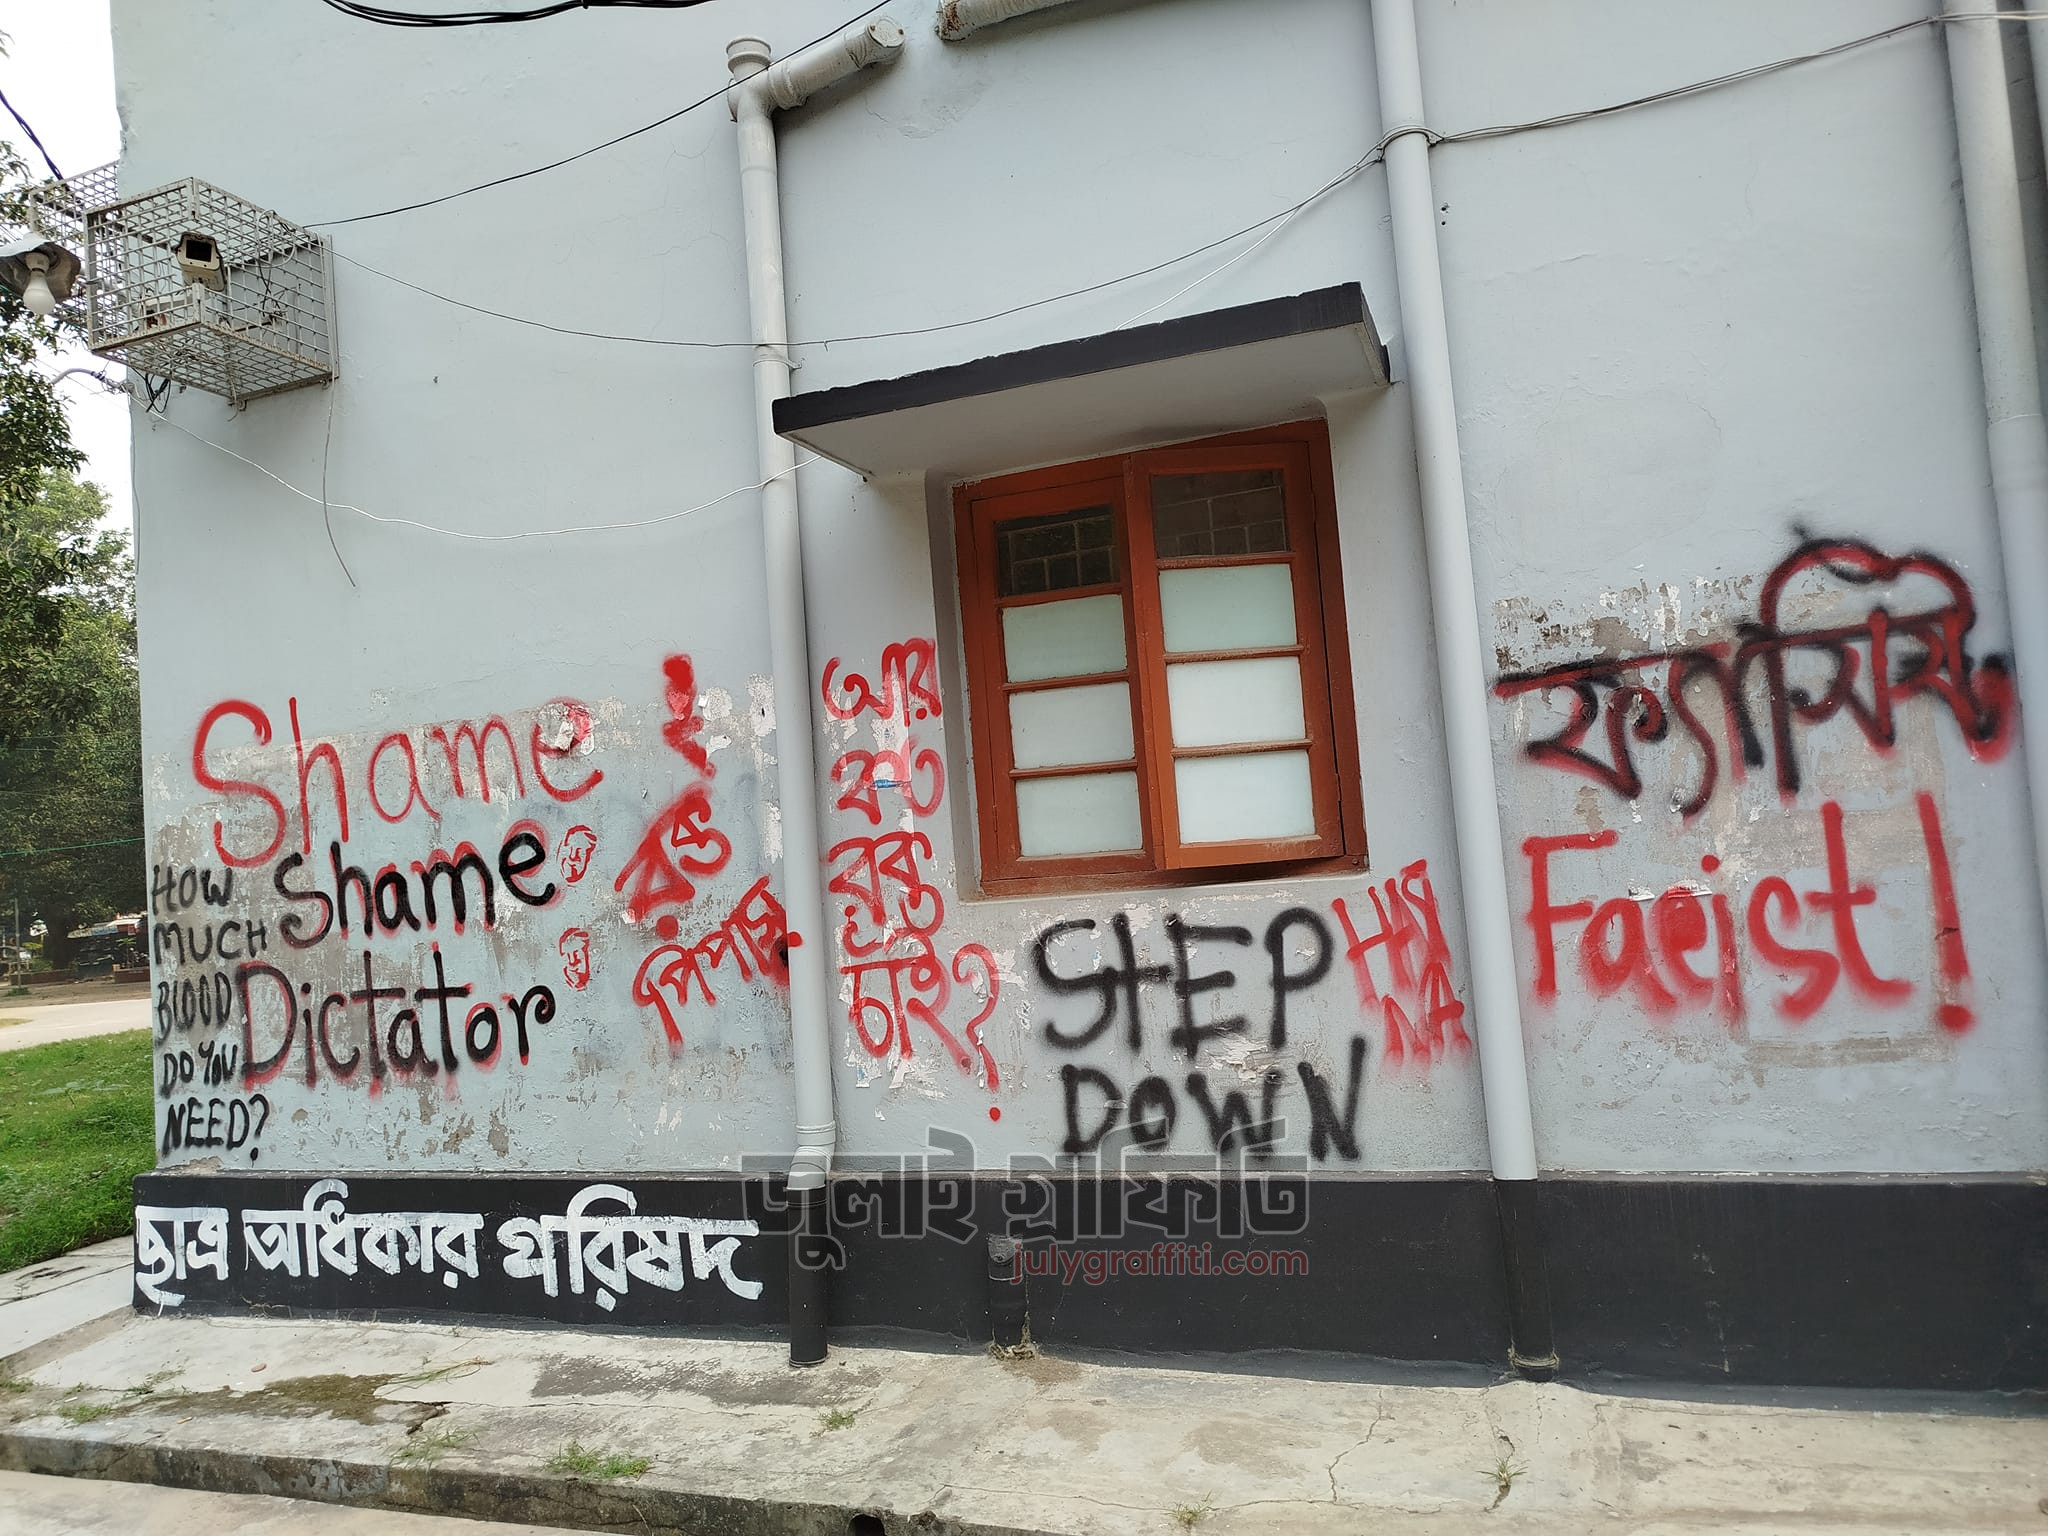 Shame
Shame
Dictator
HOW
MUCH
BLOOD
DO YOU
NEED?
রক্ত
পিপাসু
আর
কত
রক্ত
চাই?
STEP
DOWN
HASI
NA
ফ্যাসিস্ট
Facist!
ছাত্র অধিকার পরিষদ
জুলাই গ্রাফিতি
julygraffiti.com